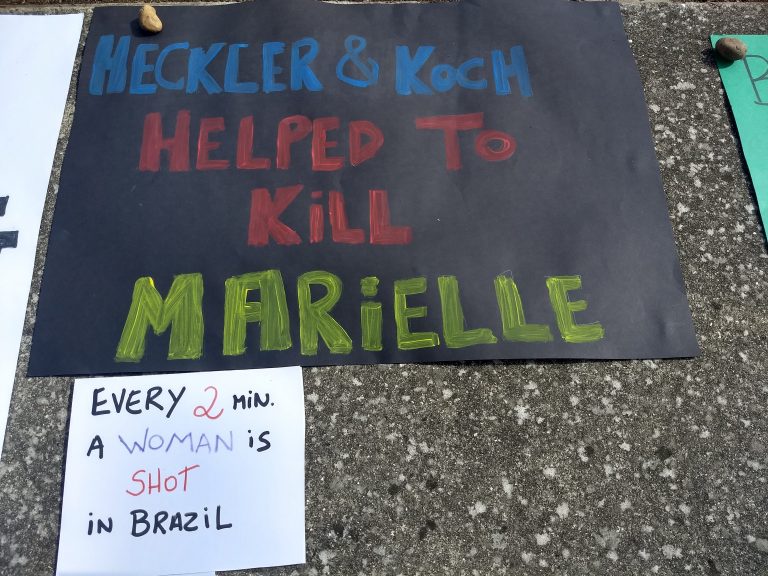 HECKLER & KOCH
HELPED TO
KiLL
MARiELLE
EVERY 2 MiN.
A WOMAN iS
SHOT
iN BRAZiL